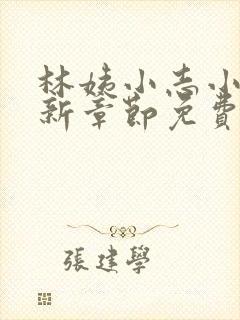 林姨小志小
新章節免費
張建學